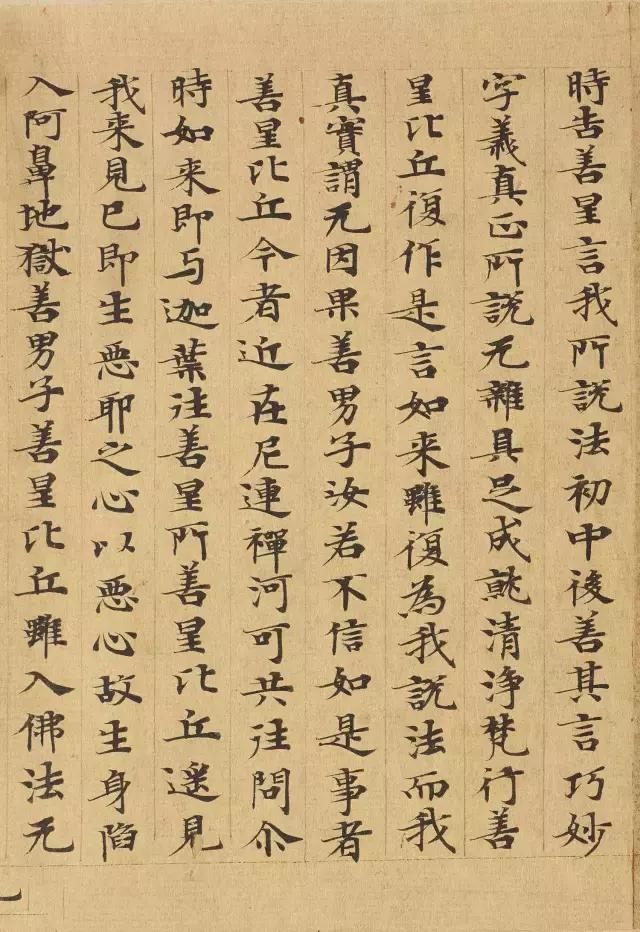 時告善星言我所說法初中後善其言巧妙
字義真正所說无雜具足成就清淨梵行善
星比丘復作是言如来雖復為我說法而我
真實謂无因果善男子汝若不信如是事者
善星比丘今者近在尼連禪河可共往問尒
時如来即与迦葉往善星所善星比丘遥見
我来見已即生惡耶之心以惡心故生身陷
入阿鼻地獄善男子善星比丘雖入佛法无